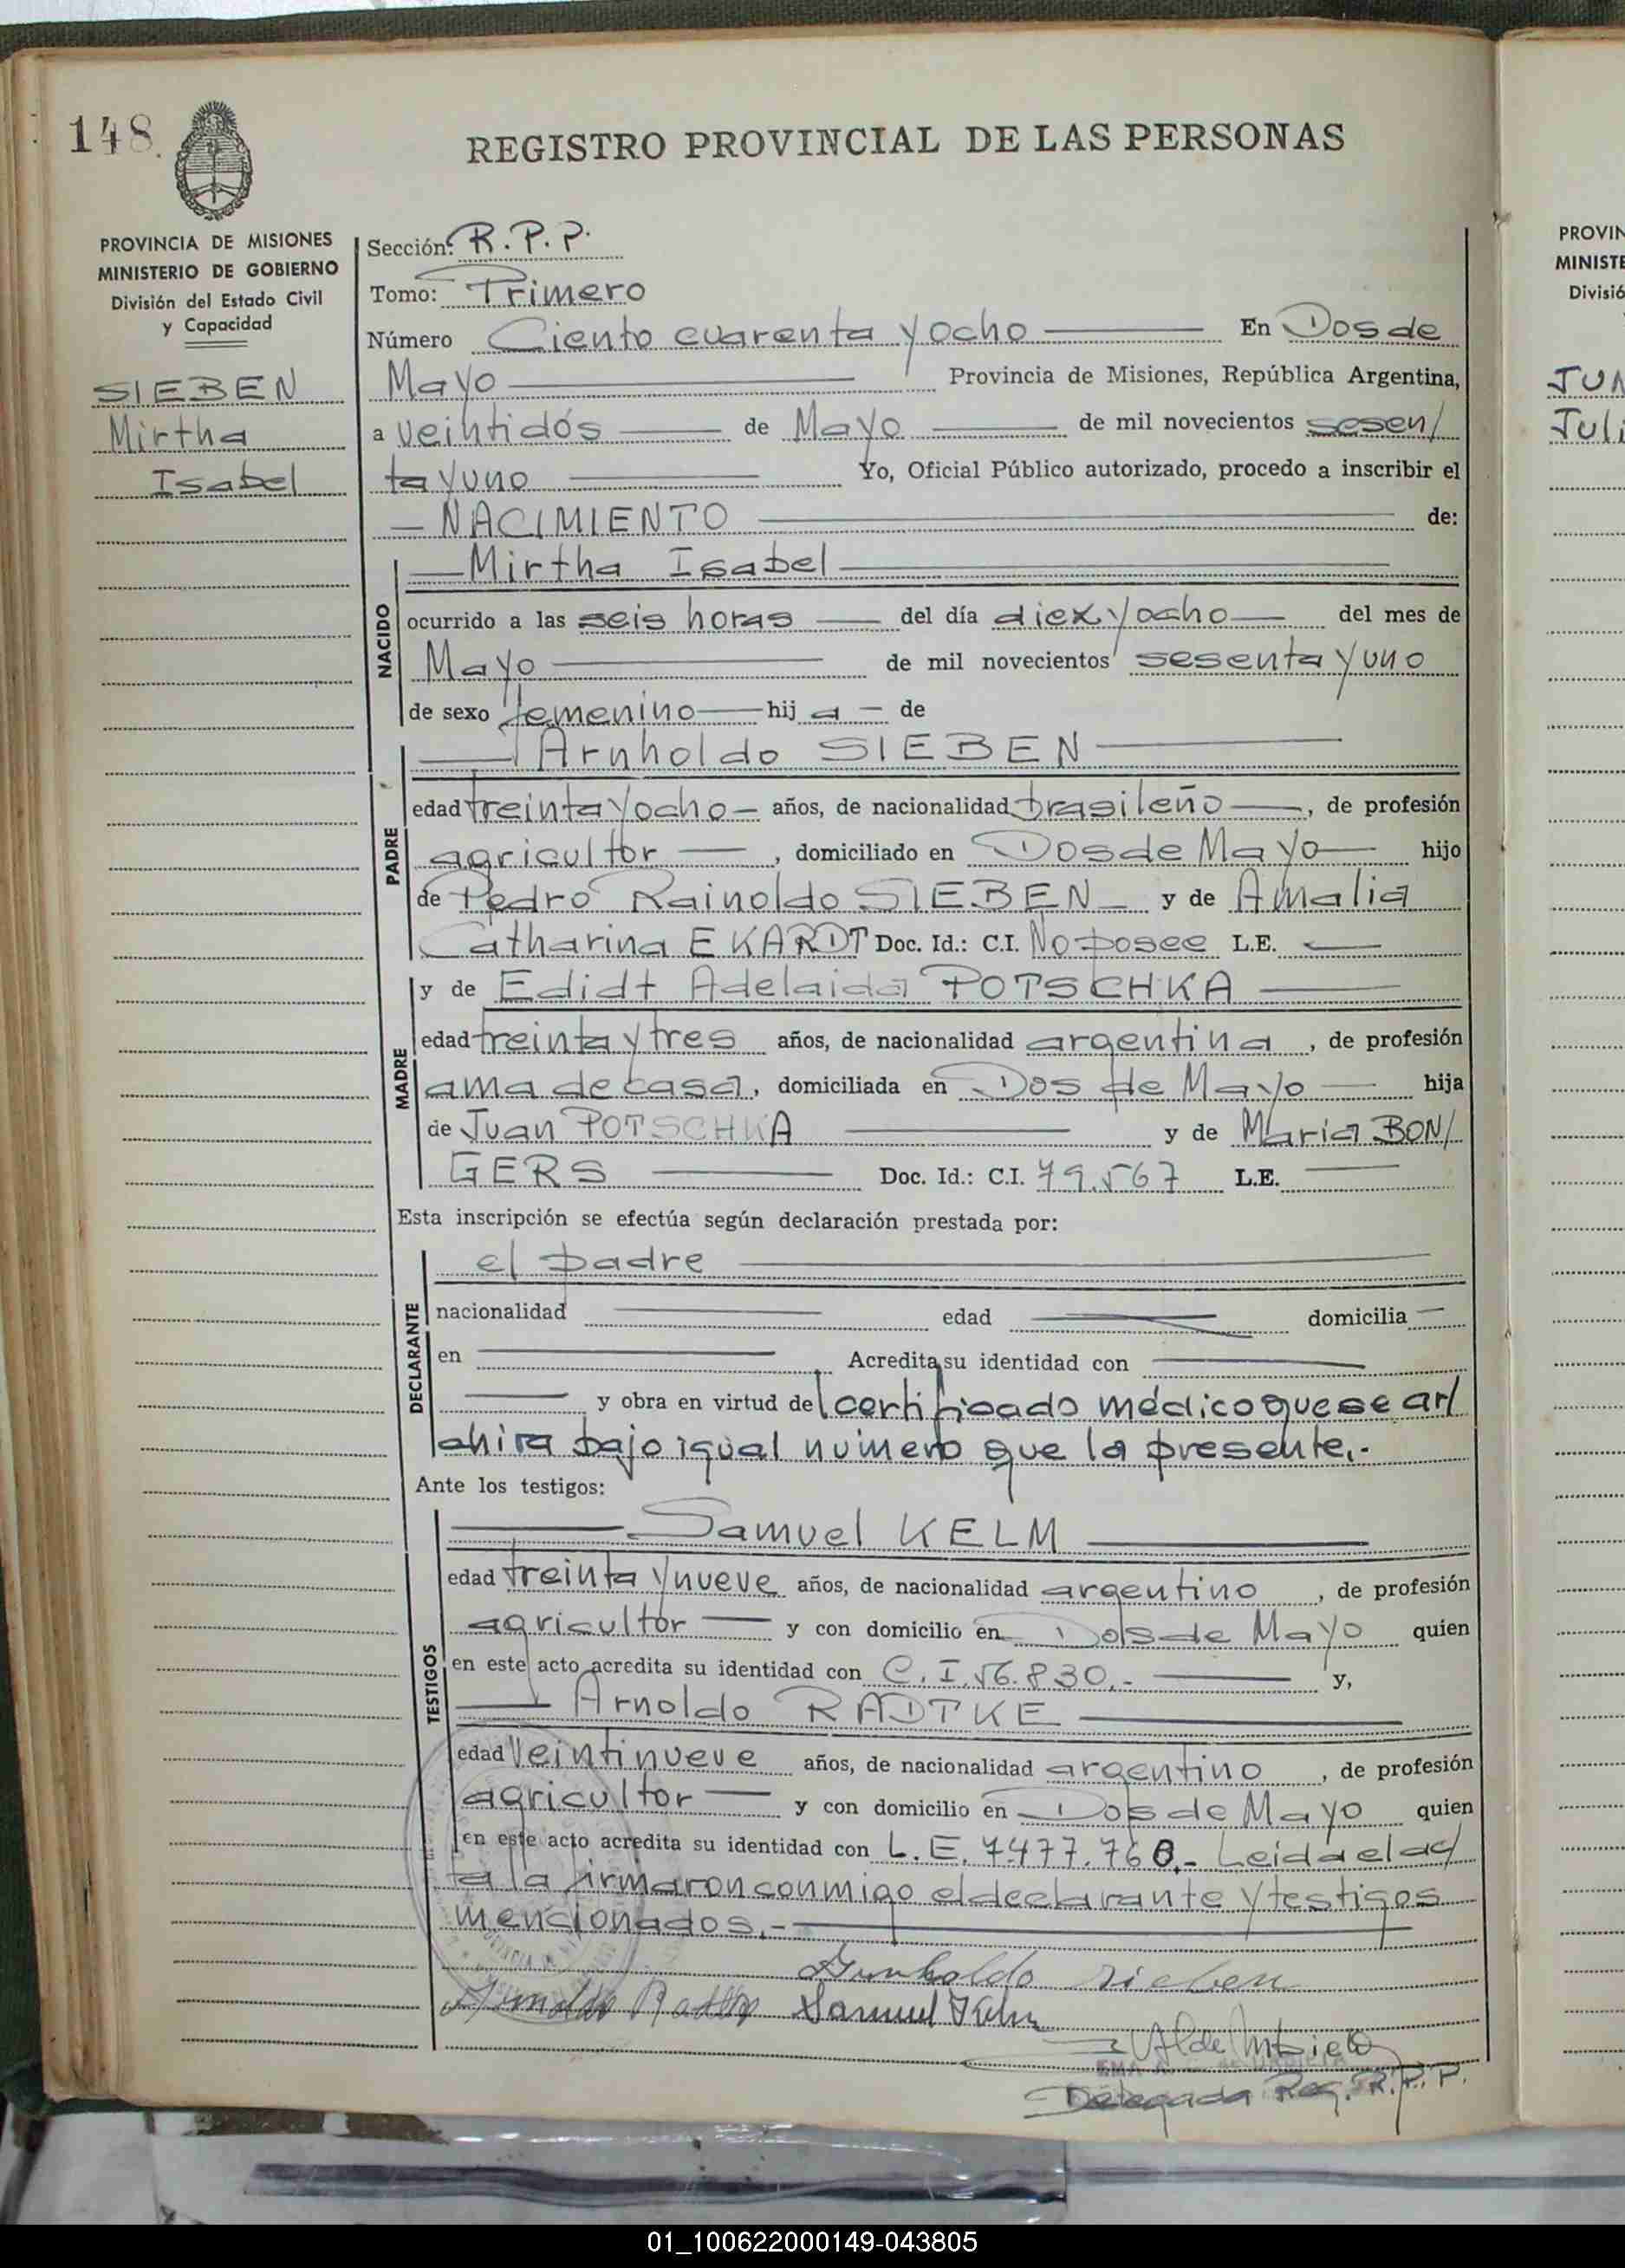 148
REGISTRO PROVINCIAL DE LAS PERSONAS
PROVINCIA DE MISIONES
MINISTERIO DE GOBIERNO
División del Estado Civil
y Capacidad
SIEBEN
Mirtha
Isabel
Sección: R.P.P.
Tomo: Primero
Número Ciento cuarenta y ocho En Dos de
Mayo Provincia de Misiones, República Argentina,
a veintidós de Mayo de mil novecientos sesen/
ta y uno Yo, Oficial Público autorizado, procedo a inscribir el
NACIMIENTO de:
NACIDO
Mirtha Isabel
ocurrido a las seis horas del día diex y ocho del mes de
Mayo de mil novecientos sesenta y uno
de sexo femenino hij a de
PADRE
Arnholdo SIEBEN
edad treinta y ocho años, de nacionalidad brasileño, de profesión
agricultor, domiciliado en Dos de Mayo hijo
de Pedro Rainoldo SIEBEN y de Amalia
Catharina EKARDT Doc. Id.: C.I. No posee L.E.
MADRE
y de Edidt Adelaida POTSCHKA
edad treinta y tres años, de nacionalidad argentina, de profesión
ama de casa, domiciliada en Dos de Mayo hija
de Juan POTSCHKA y de Maria BON/
GERS Doc. Id.: C.I. 79.567 L.E.
Esta inscripción se efectúa según declaración prestada por:
DECLARANTE
el padre
nacionalidad edad domicilia
en Acredita su identidad con
y obra en virtud del certificado médico que se ar/
chiva bajo igual número que la presente.-
Ante los testigos:
TESTIGOS
Samuel KELM
edad treinta y nueve años, de nacionalidad argentino, de profesión
agricultor y con domicilio en Dos de Mayo quien
en este acto acredita su identidad con C.I. 56.830.- y,
Arnoldo RADTKE
edad veintinueve años, de nacionalidad argentino, de profesión
agricultor y con domicilio en Dos de Mayo quien
en este acto acredita su identidad con L.E. 7.477.760.- Leida el ac/
ta la firmaron conmigo el declarante y testigos
mencionados.-
Arnholdo Sieben
Arnoldo Radtke Samuel Kelm
Delegada Reg. R.P.P.
PROVIN
MINISTE
Divisió
JUN
Juli
01_100622000149-043805